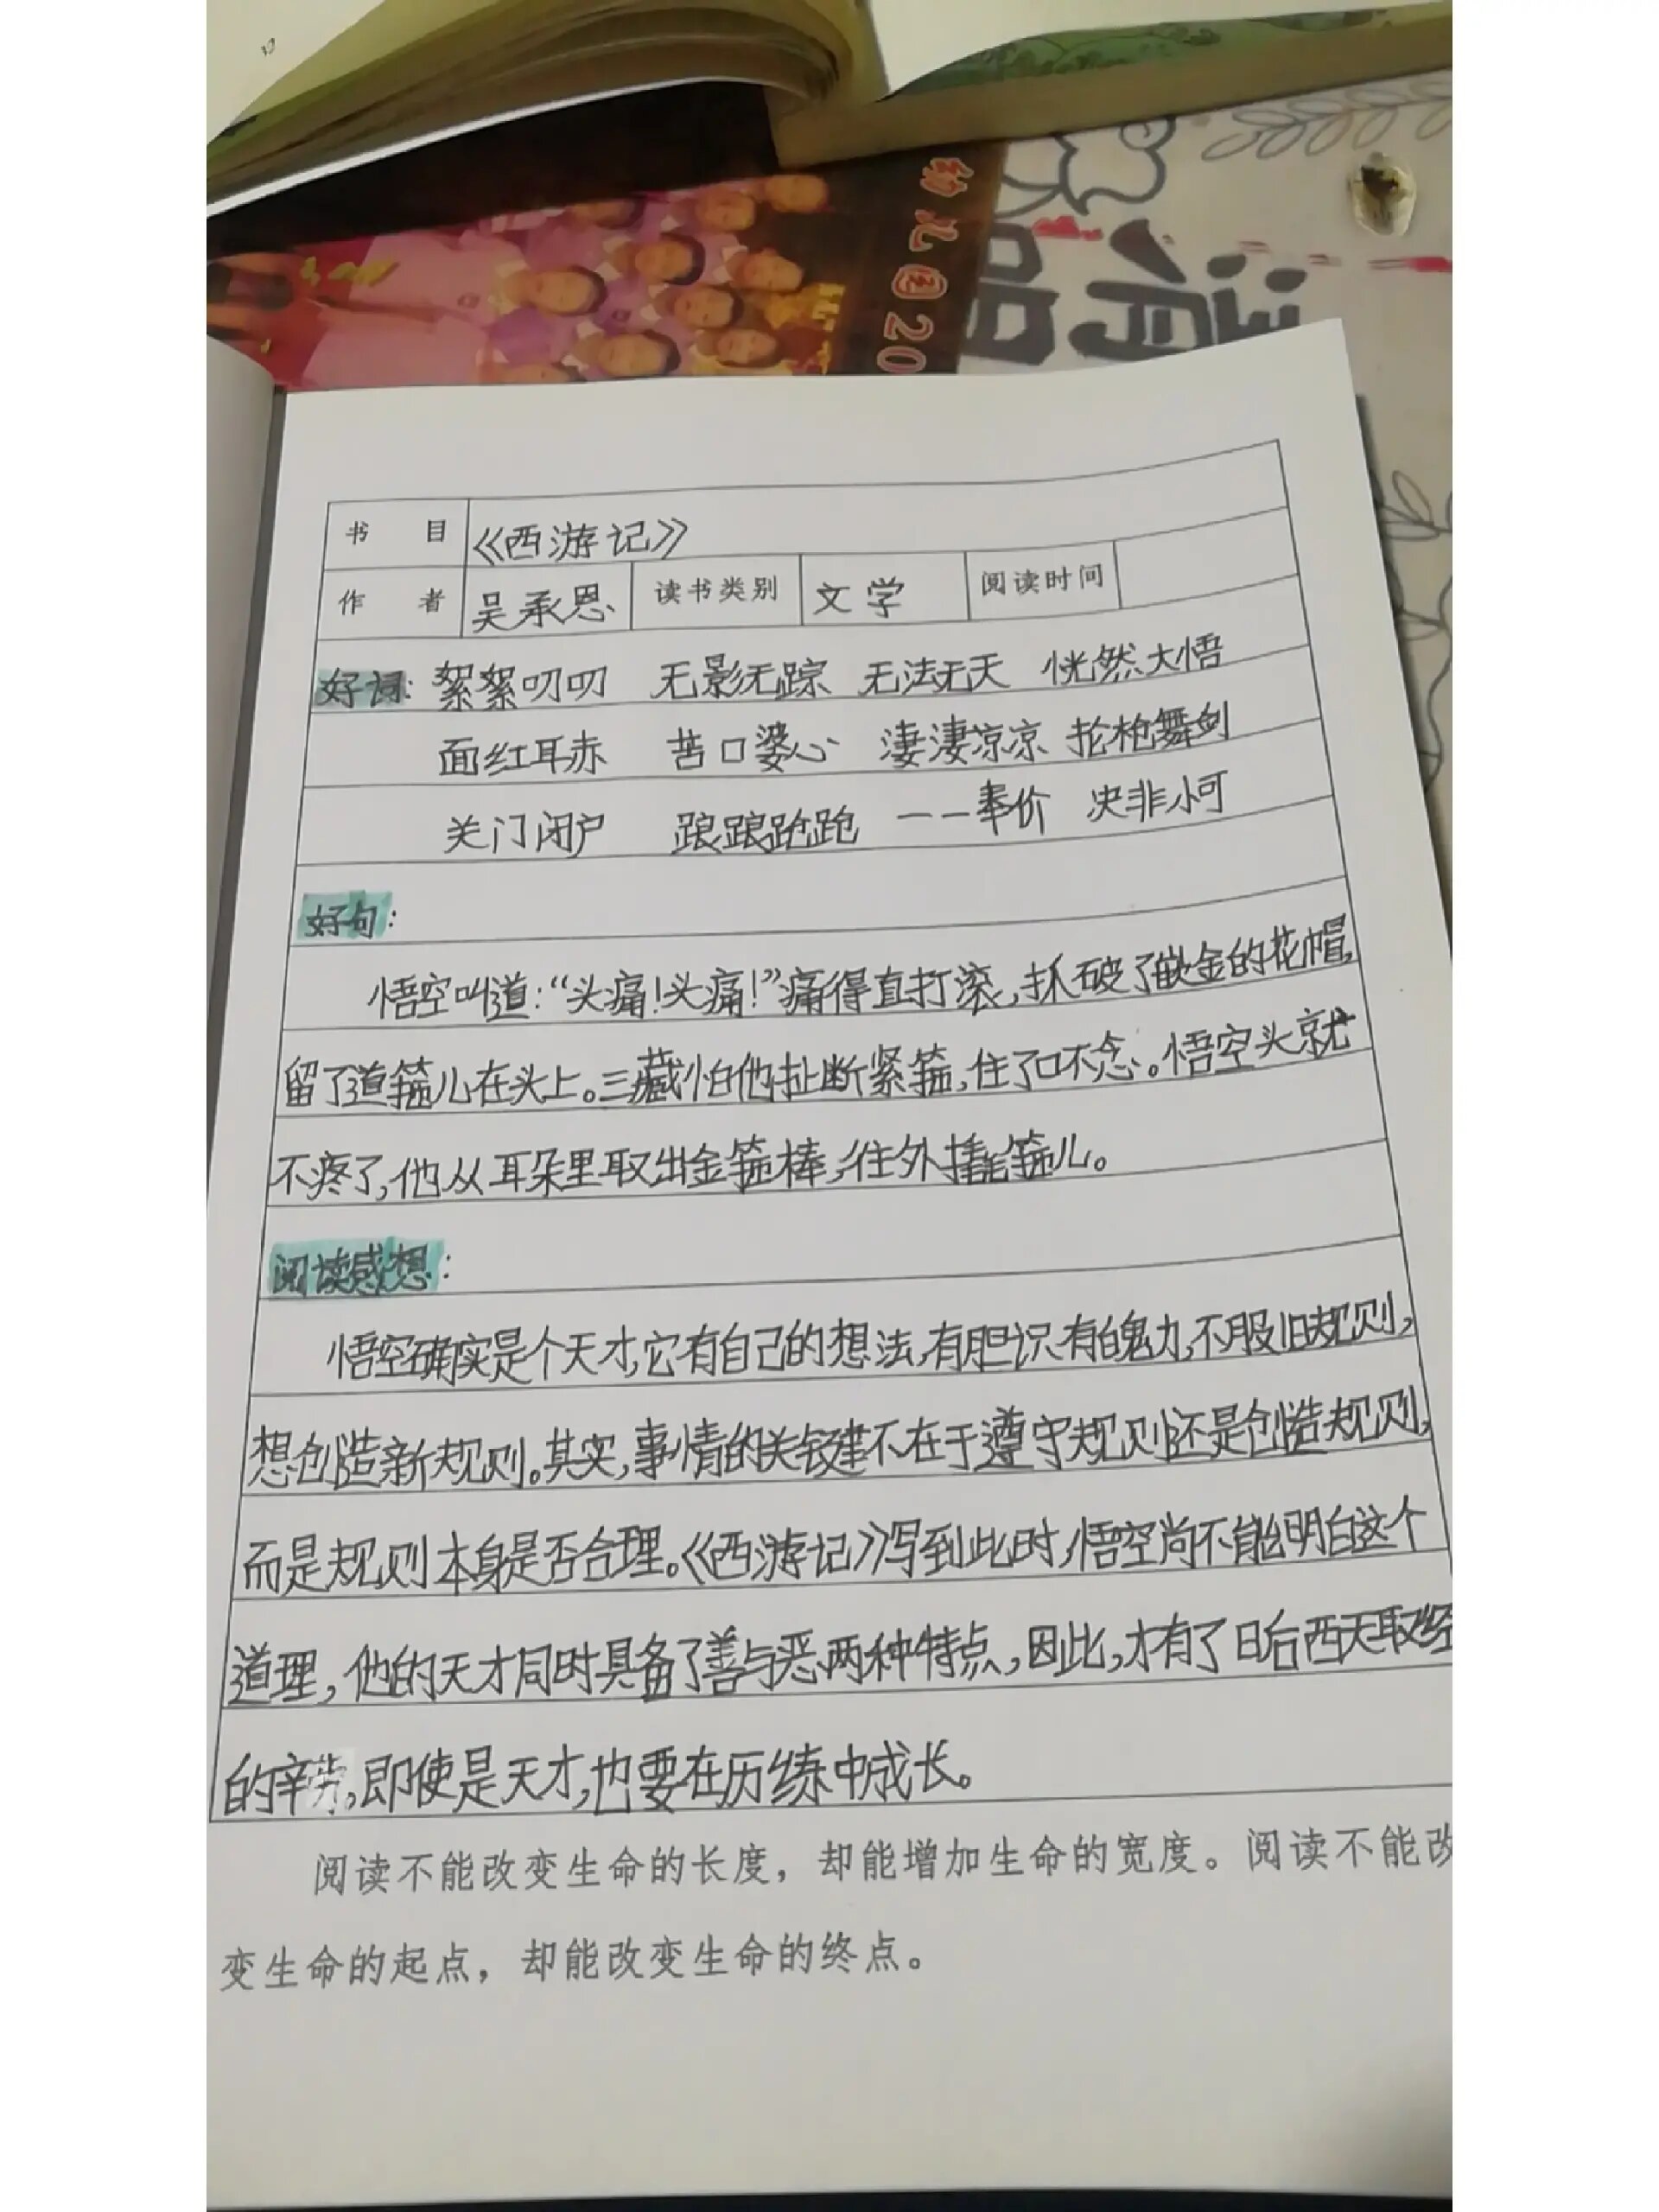 幼儿园20
书 目 《西游记》
作 者 吴承恩 读书类别 文学 阅读时间
好词: 絮絮叨叨 无影无踪 无法无天 恍然大悟
面红耳赤 苦口婆心 凄凄凉凉 抡枪舞剑
关门闭户 踉踉跄跄 一一奉价 决非小可
好句:
悟空叫道:“头痛!头痛!”痛得直打滚,抓破了嵌金的花帽,
留了道箍儿在头上。三藏怕他扯断紧箍,住了口不念。悟空头就
不疼了,他从耳朵里取出金箍棒,往外撬箍儿。
阅读感想:
悟空确实是个天才,它有自己的想法,有胆识有魄力,不服旧规则,
想创造新规则。其实,事情的关键不在于遵守规则还是创造规则,
而是规则本身是否合理。《西游记》写到此时,悟空尚不能明白这个
道理,他的天才同时具备了善与恶两种特点,因此,才有了日后西天取经
的辛劳。即使是天才,也要在历练中成长。
阅读不能改变生命的长度，却能增加生命的宽度。阅读不能改
变生命的起点，却能改变生命的终点。